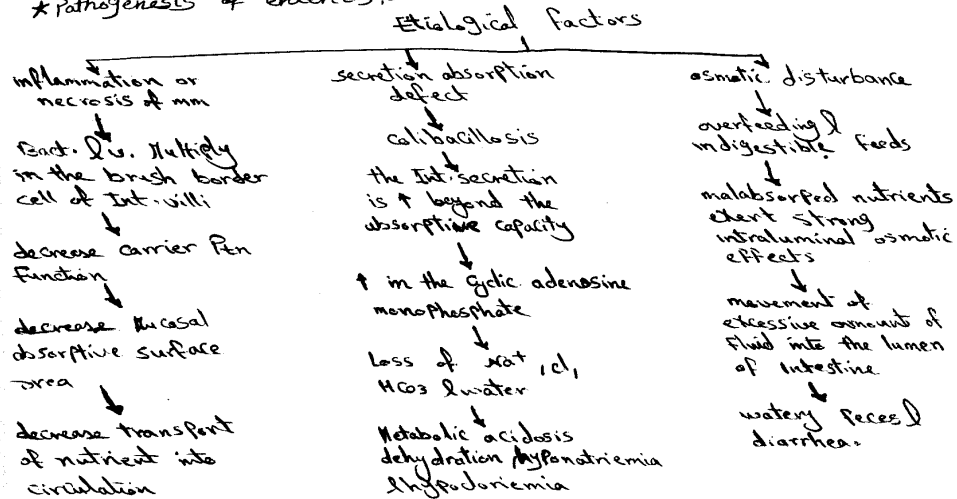 *Pathogenesis of
Etiological factors
inflammation or
necrosis of mm
Bact. & v. Multiply
in the brush border
cell of Int. villi
decrease carrier Ptn
function
decrease Mucosal
absorptive surface
area
decrease transport
of nutrient into
circulation
secretion absorption
defect
colibacillosis
the Int. secretion
is ↑ beyond the
absorptive capacity
↑ in the Cyclic adenosine
monophosphate
Loss of Na+, cl,
HCO3 & water
Metabolic acidosis
dehydration, hyponatriemia
& hypocloriemia
osmotic disturbance
overfeeding &
indigestible feeds
malabsorped nutrients
exert strong
intraluminal osmotic
effects
movement of
excessive amount of
fluid into the lumen
of intestine
watery feces &
diarrhea.